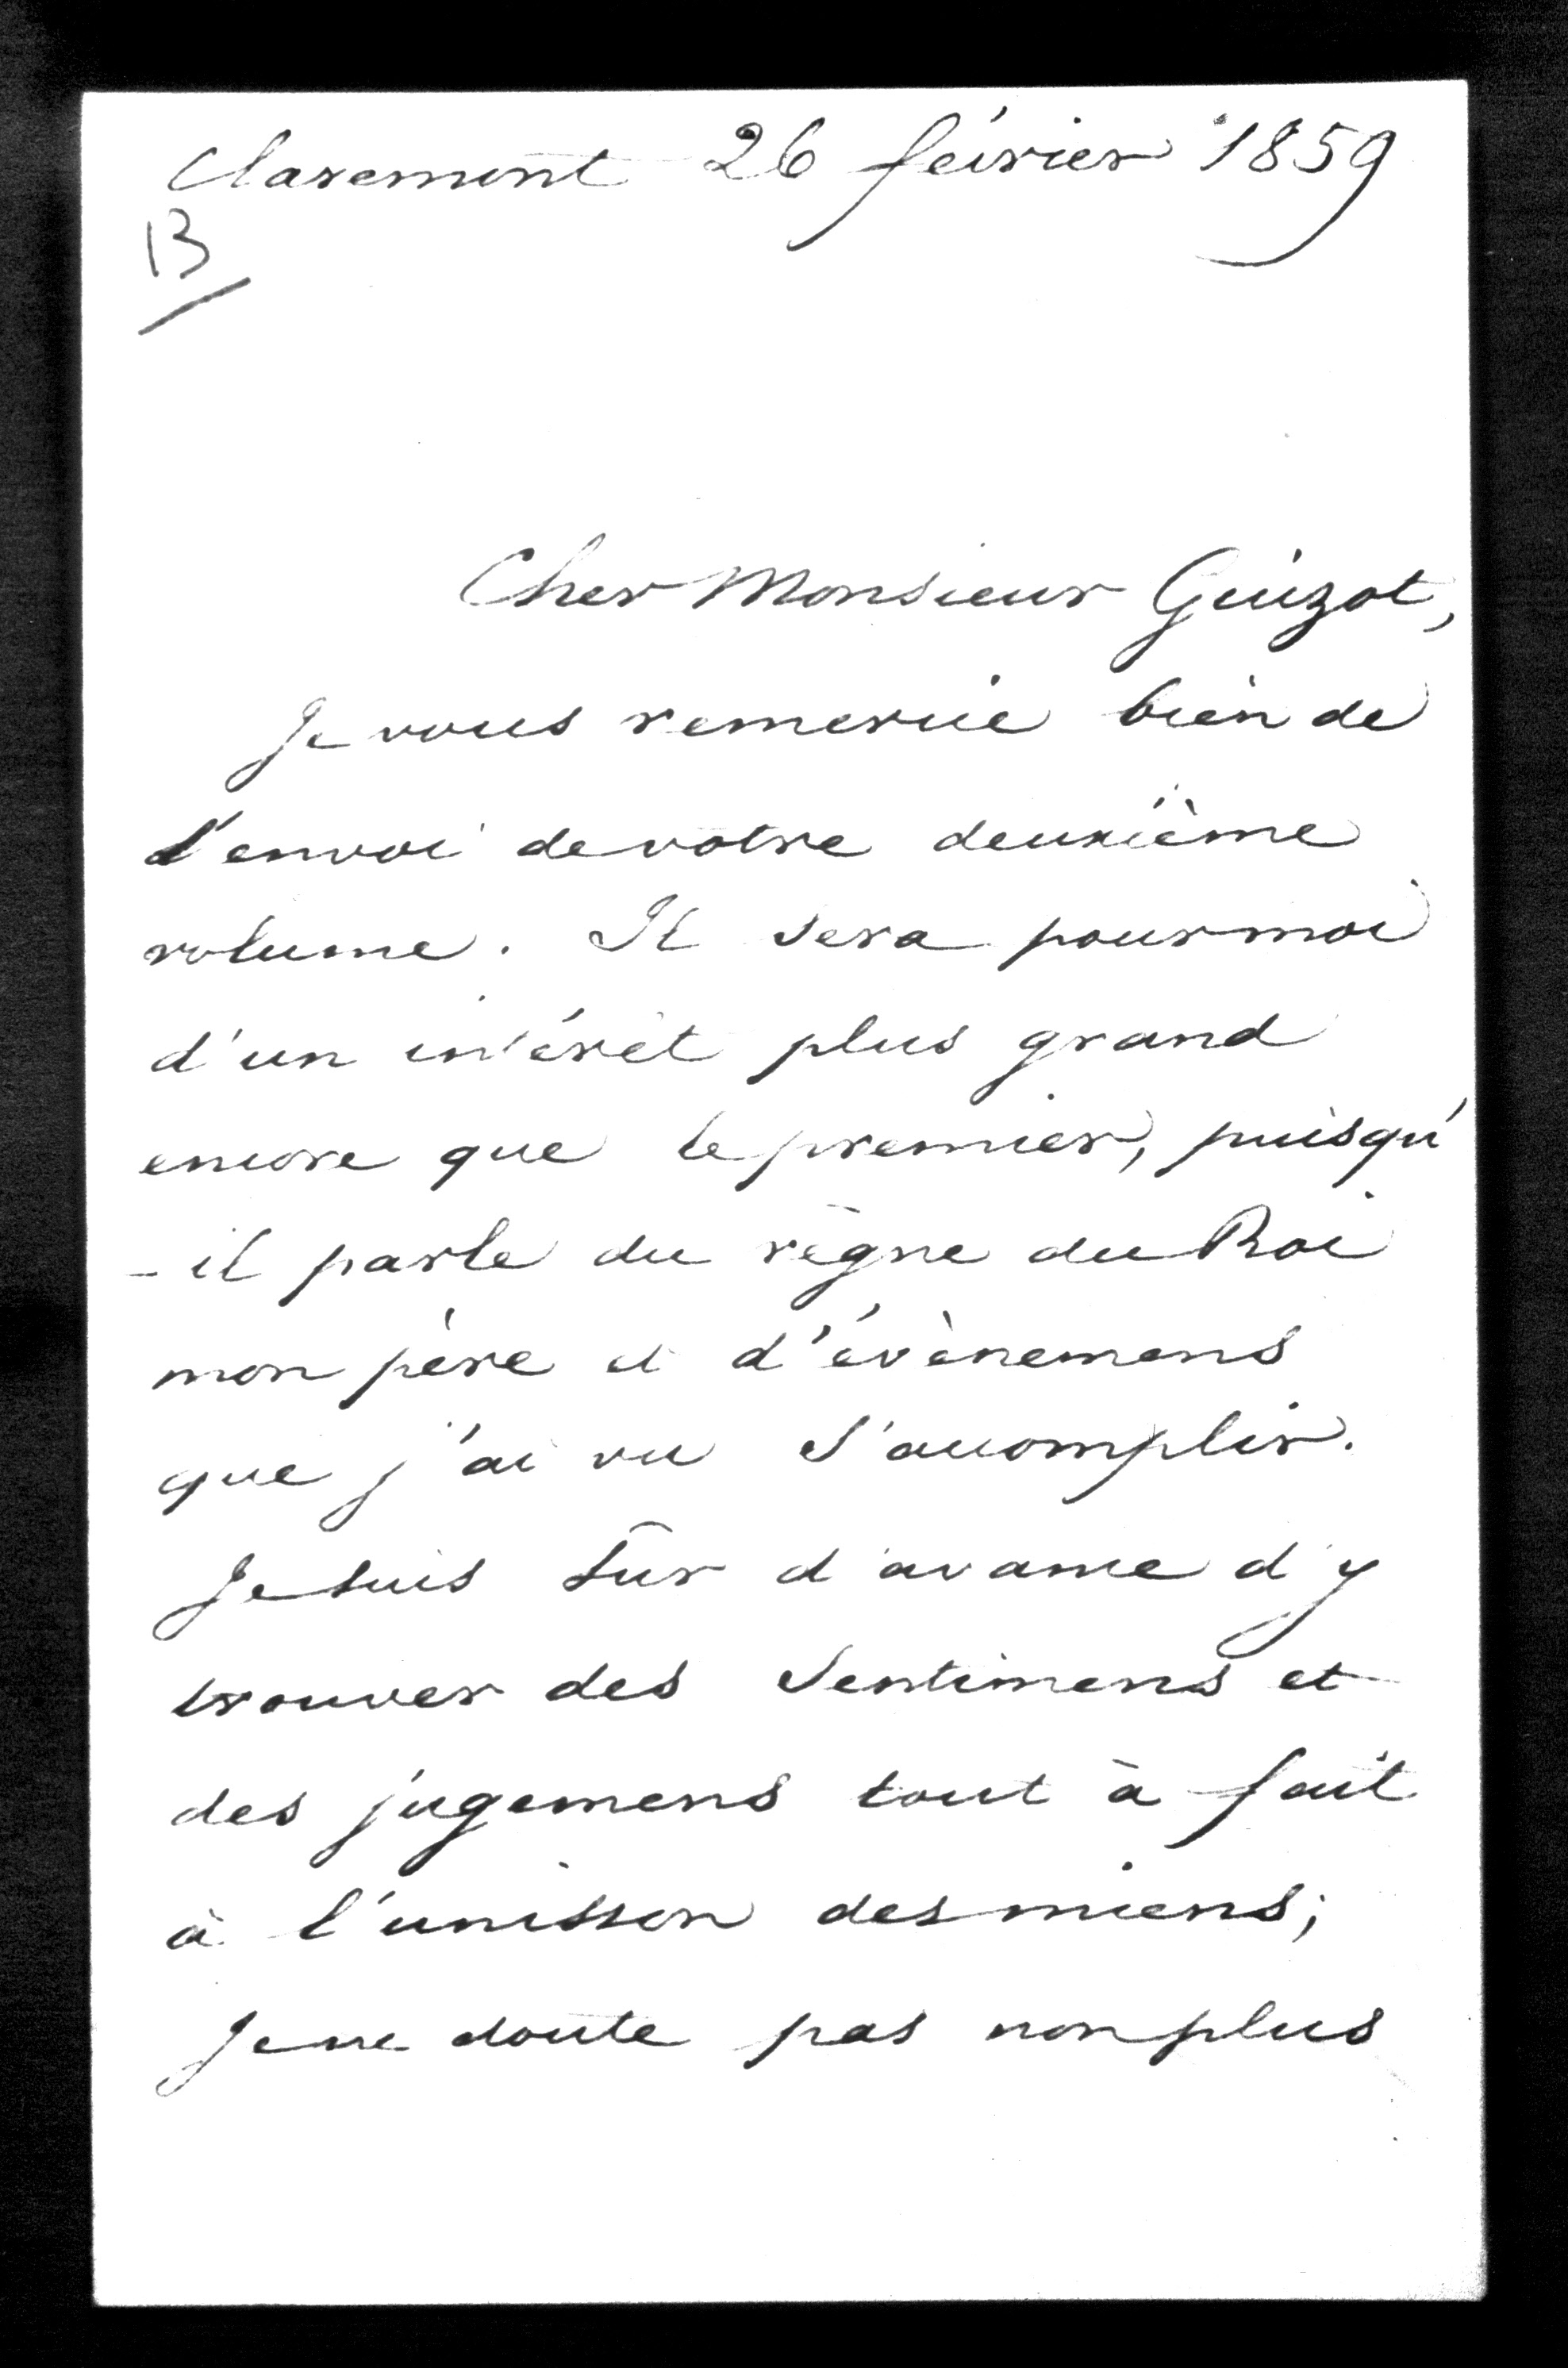 Claremont 26 février 1859
13
Cher Monsieur Guizot,
Je vous remercie bien de
l'envoi de votre deuxième
volume. Il sera pour moi
d'un intérêt plus grand
encore que le premier, puisqu'
-il parle du règne du Roi
mon père et d'évènemens
que j'ai vu s'accomplir.
Je suis sûr d'avance d'y
trouver des sentimens et
des jugemens tout à fait
à l'unisson des miens;
Je ne doute pas non plus